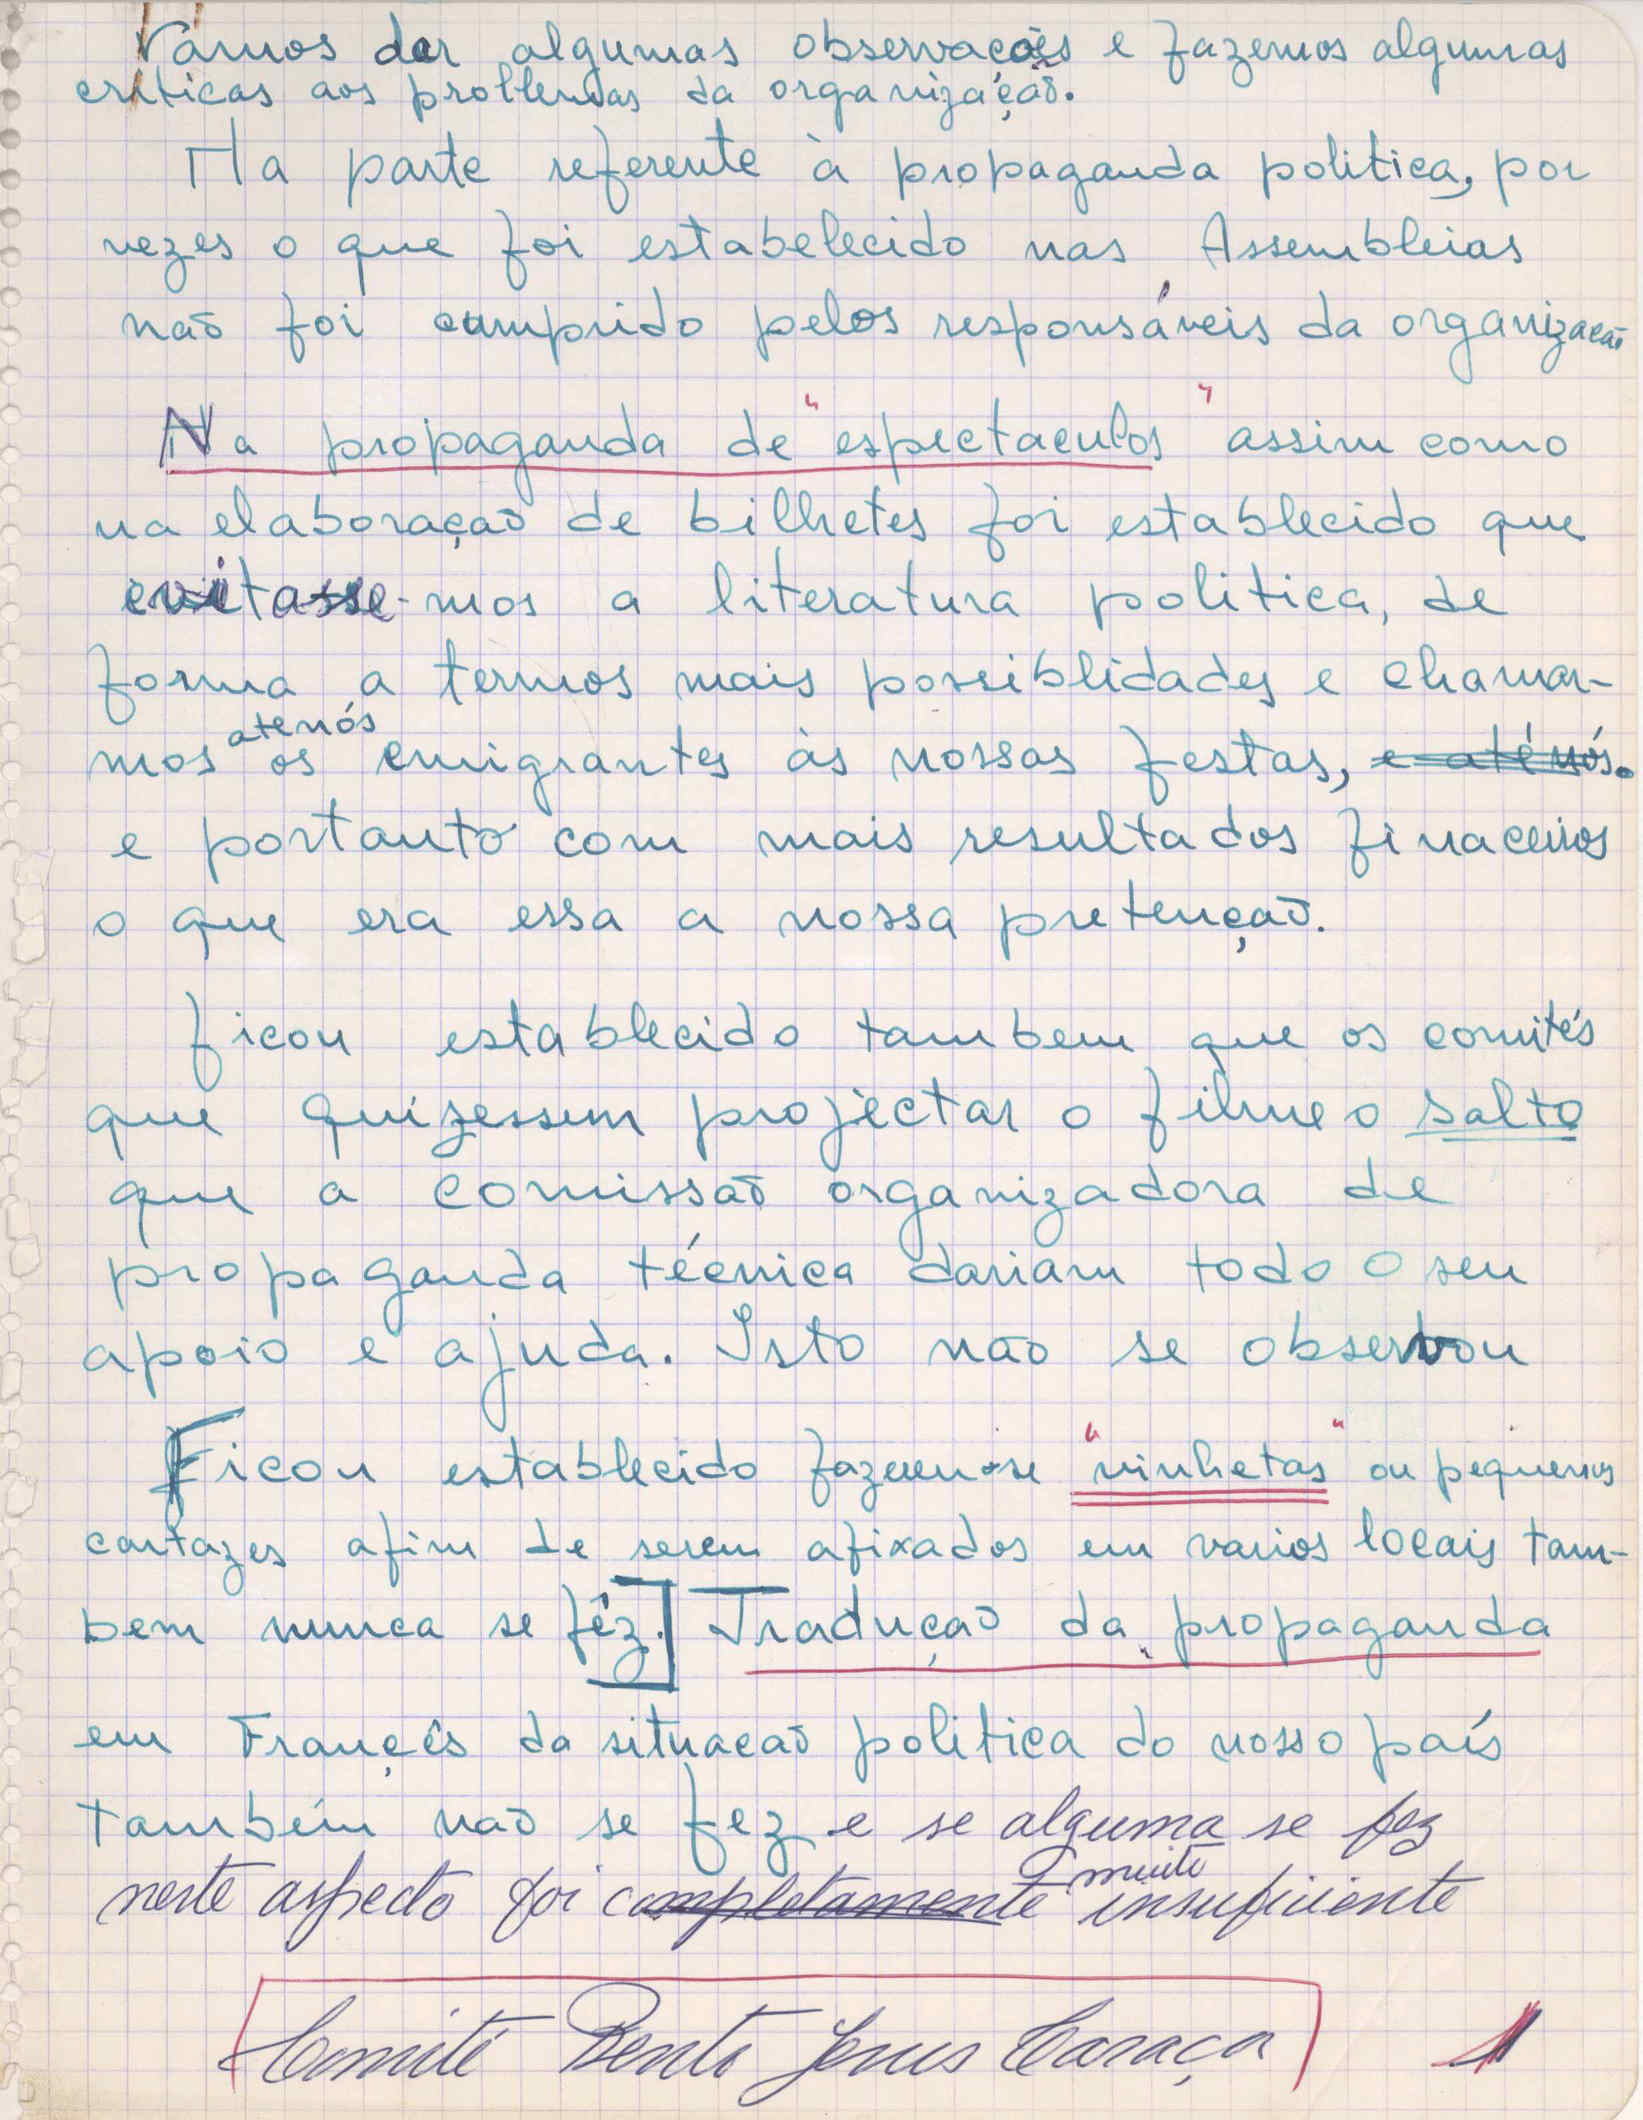 Vamos dar algumas observações e fazemos algumas
criticas aos problemas da organização.
Na parte referente à propaganda politica, por
vezes o que foi estabelecido nas Assembleias
não foi cumprido pelos responsáveis da organizacão
Na propaganda de "espectaculos" assim como
na elaboração de bilhetes foi establecido que
evitasse-mos a literatura politica, de
forma a termos mais possiblidades e chamar-
mos até nós os emigrantes às nossas festas, e até nós.
e portanto com mais resultados finaceiros
o que era essa a nossa pretenção.
ficou establecido tambem que os comités
que quizessem projectar o filme o salto
que a comissão organizadora de
propaganda técnica dariam todo o seu
apoio e ajuda. Isto não se observou
Ficou establecido fazerem-se "vinhetas" ou pequenos
cartazes afim de serem afixados em varios locais tam-
bem nunca se fêz.] Tradução da propaganda
em Françês da situacão politica do nosso país
também não se fez e se alguma se fez
neste aspecto foi completamente muito insuficiente
Comité Bento Jesus Caraça 1